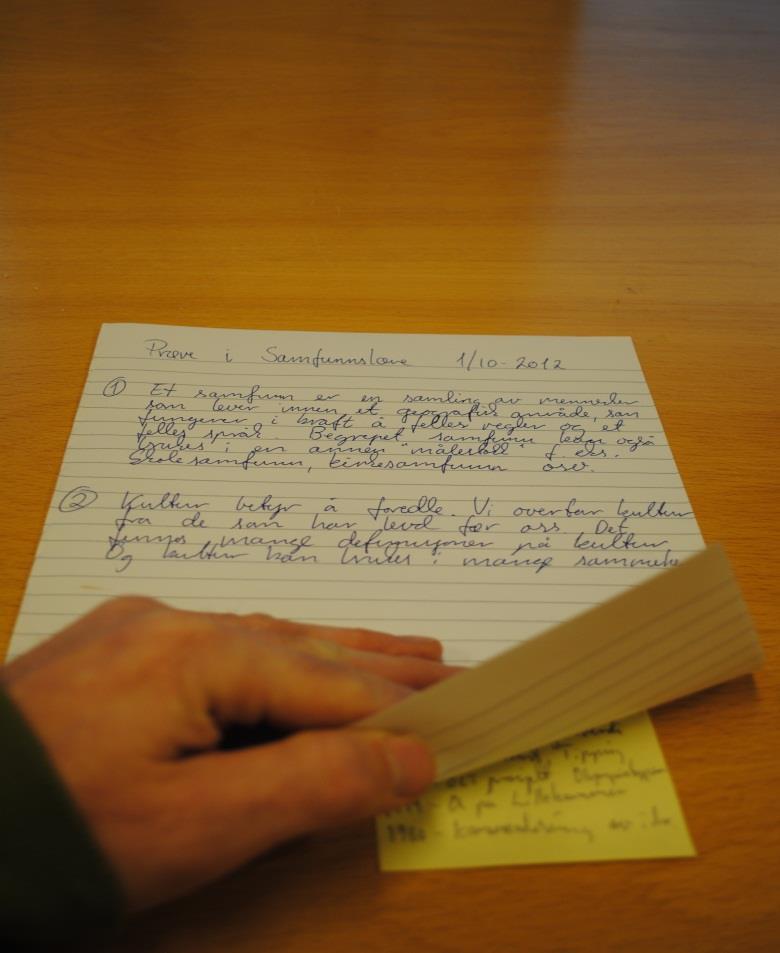 Prøve i Samfunnslære 1/10-2012
① Et samfunn er en samling av mennesker
som lever innen et geografisk område, som
fungerer i kraft å felles regler og et
felles språk. Begrepet samfunn kan også
brukes i en annen "målestokk" f. eks.
Skolesamfunn, kinesamfunn osv.
② Kultur betyr å foredle. Vi overtar kultur
fra de som har levd før oss. Det
finnes mange definisjoner på kultur
Og kultur kan brukes i mange
Tipping
- OL på Lillehammer